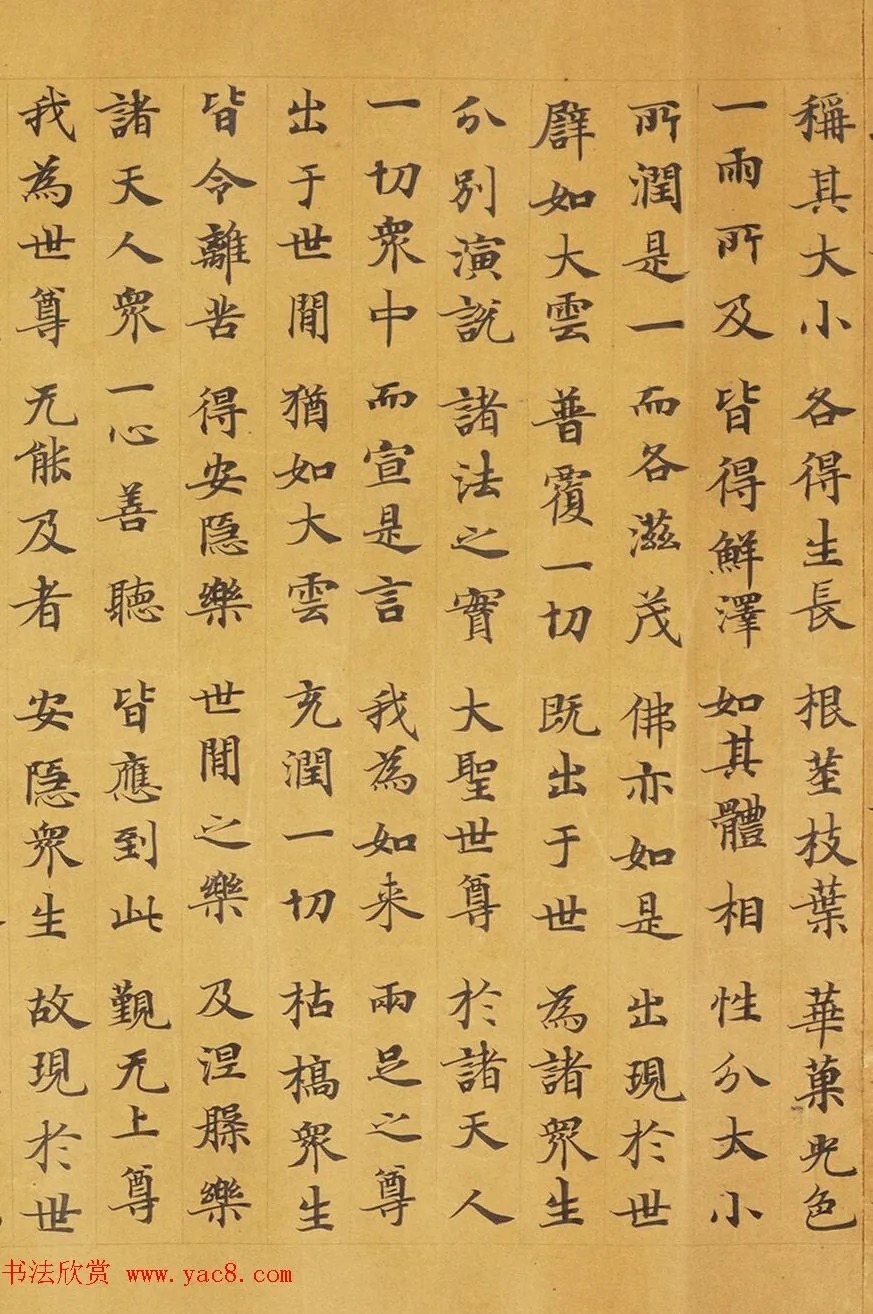 稱其大小 各得生長 根莖枝葉 華菓光色
一雨所及 皆得鮮澤 如其體相 性分大小
所潤是一 而各滋茂 佛亦如是 出現於世
譬如大雲 普覆一切 既出于世 為諸眾生
分別演説 諸法之實 大聖世尊 於諸天人
一切眾中 而宣是言 我為如来 兩足之尊
出于世間 猶如大雲 充潤一切 枯槁眾生
皆令離苦 得安隱樂 世間之樂 及涅槃樂
諸天人眾 一心善聽 皆應到此 覲无上尊
我為世尊 无能及者 安隱眾生 故現於世
书法欣赏 www.yac8.com